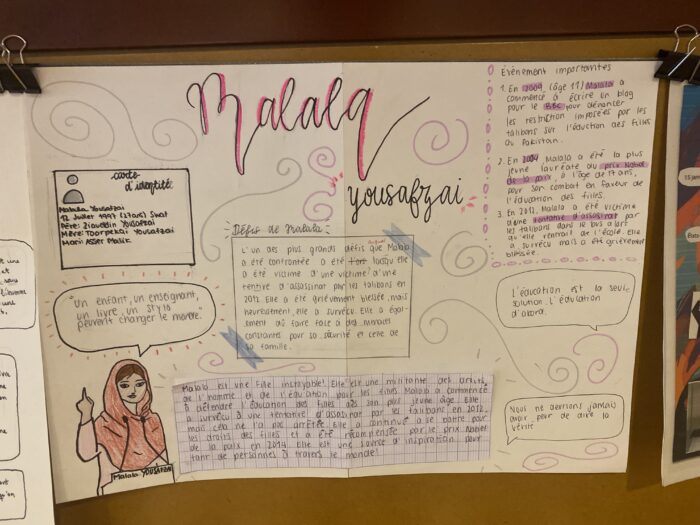 Malala
yousafzai
carte
d'identité
Malala Yousafzai
12 Juillet 1997 (27ans) Swat
Père: Ziauddin Yousafzai
Mère: Toorpekai Yousafzai
Mari: Asser Malik
"Un enfant, un enseignant,
un livre, un stylo
peuvent changer le monde."
Malala YOUSAFZAI
Défis de Malala:
L'un des plus grands défis que Malala
a été confrontée a été lorsqu'elle
a été victime d'une victime d'une
tentive d'assasinat par les talibans en
2012. Elle a été grièvement blessée, mais
heureusement, elle a survécu. Elle a égal-
ement dû faire face à des menaces
constantes pour sa sécurité et celle de
sa famille.
Malala est une fille incroyable! Elle est une militante des droits
de l'homme et de l'éducation pour les filles. Malala a commencé
à défendre l'éducation des filles dès son plus jeune âge. Elle
a survécu à une tentative d'assasinat par les talibans en 2012,
mais cela ne l'a pas arrêtée. Elle a continué à se battre pour
les droits des filles et a été récompensée par le prix Nobel
de la paix en 2014. Elle est une source d'inspiration pour
tant de personnes à travers le monde!
Évènement importantes
1. En 2009 (âge 11) Malala a
commencé à écrire un blog
pour le BBC pour dénancer
les restriction imposées par les
talibans sur l'éduction des filles
au Pakistan.
2. En 2014 Malala a été la plus
jeune lauréate au prix Nobel
de la paix, à l'âge de 17 ans,
pour son combat en faveur de
l'éducation des filles.
3. En 2012, Malala a été victime
d'une tentative d'assasinat par
les talibans dans le bus alors
qu'elle rentrait de l'école. Elle
a survécu mais a été grièvement
blessée.
L'éducation est la seule
solution. L'éducation
d'abord.
Nous ne devrions jamais
avoir peur de dire la
vérité